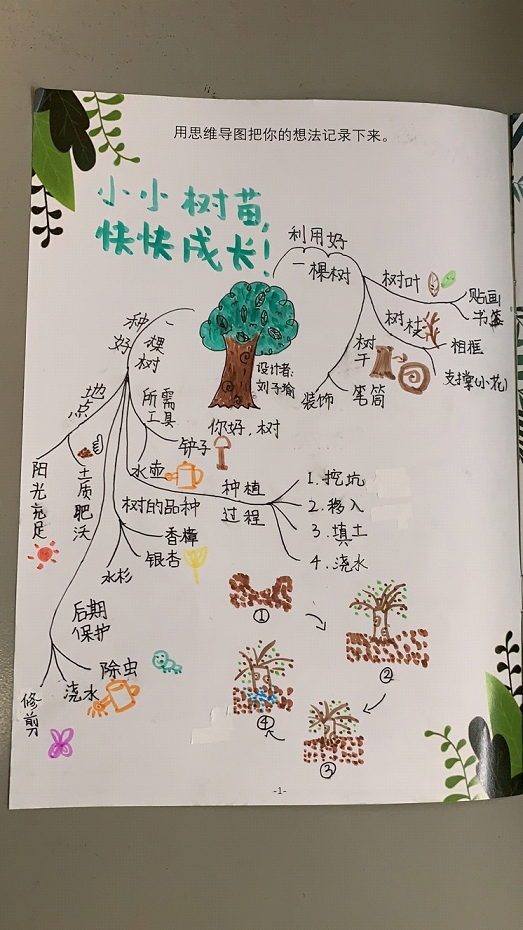 用思维导图把你的想法记录下来。
小小树苗,
快快成长!
利用好
一棵树
树叶
贴画
书签
树枝
相框
支撑(小花)
树干
笔筒
装饰
种好一棵树
设计者:
刘予瑜
你好,树
地点
阳光充足
土质肥沃
所需
工具
铲子
水壶
种植
过程
1.挖坑
2.移入
3.填土
4.浇水
树的品种
香樟
银杏
水杉
后期
保护
除虫
浇水
修剪
①
②
③
④
-1-